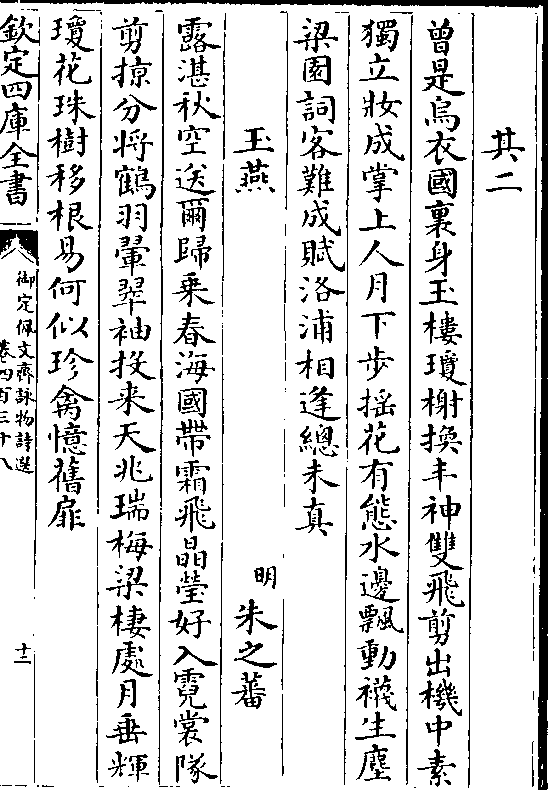 其二
曾是烏衣國裏身玉樓瓊榭換丰神雙飛剪出機中素
獨立妝成掌上人月下步摇花有態水邊飄動襪生塵
梁園詞客難成賦洛浦相逢總未真
玉燕
明 朱之蕃
露湛秋空送爾歸乗春海國帶霜飛晶瑩好入霓裳隊
剪掠分将鶴羽翬翠袖投来天兆瑞梅梁棲處月垂輝
瓊花珠樹移根易何似珍禽憶舊扉
欽定四庫全書
御定佩文齋詠物詩選
卷四百三十八
十二